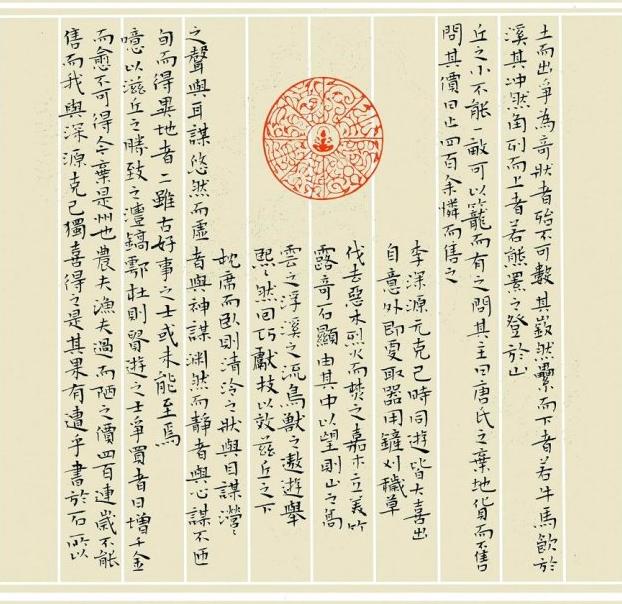 土而出爭為奇狀者殆不可數其嶔然纍而下者若牛馬飲於
溪其沖然角列而上者若熊羆之登於山
丘之小不能一畝可以籠而有之問其主曰唐氏之棄地貨而不售
問其價曰止四百余憐而售之
李深源元克己時同遊皆大喜出
自意外即更取器用鏟刈穢草
伐去惡木烈火而焚之嘉木立美竹
露奇石顯由其中以望則山之高
雲之浮溪之流鳥獸之遨遊舉
熙〻然回巧獻技以效茲丘之下
枕席而臥則清泠之狀與目謀瀯〻
之聲與耳謀悠然而虛者與神謀淵然而靜者與心謀不匝
旬而得異地者二雖古好事之士或未能至焉
噫以茲丘之勝致之灃鎬鄠杜則貴遊之士爭買者日增千金
而愈不可得今棄是州也農夫漁夫過而陋之價四百連歲不能
售而我與深源克己獨喜得之是其果有遭乎書於石所以